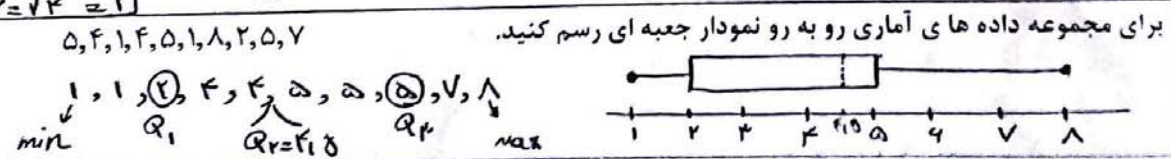 برای مجموعه داده ها ی آماری رو به رو نمودار جعبه ای رسم کنید.
۵,۴,۱,۴,۵,۱,۸,۲,۵,۷
۱ , ۱ , ۲ , ۴ , ۴ , ۵ , ۵ , ۵ , ۷ , ۸
min Q۱ Q۲=۴٫۵ Q۳ Max
۱ ۲ ۳ ۴ ۴٫۵ ۵ ۶ ۷ ۸